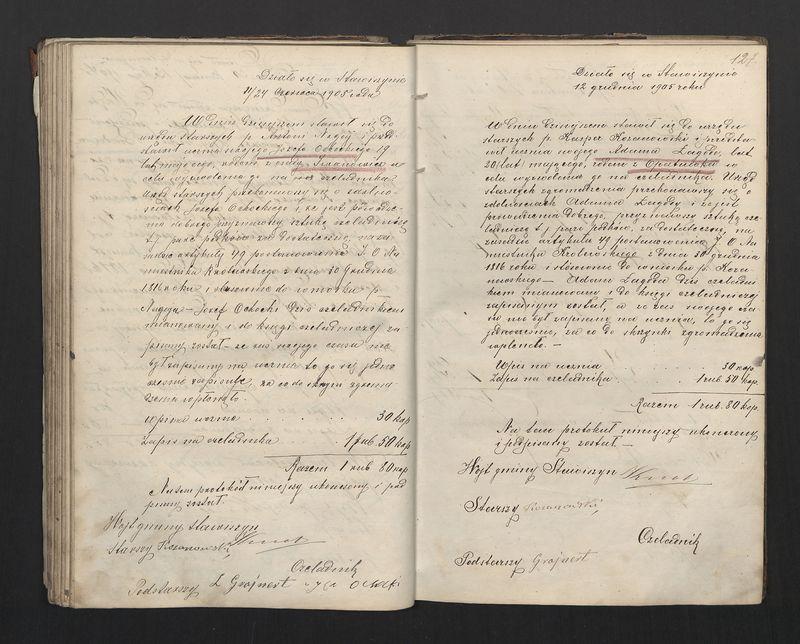 Działo się w Stawiszynie
11/24 Czerwca 1905 roku
W Dniu dzisiejszem stawił się do
urzędu starszych p. Antoni i przed
stawił ucznia swojego Józefa Ochockiego 19
lat mającego, rodem z wsi w
celu wyzwolenia go na czeladnika
Urząd starszych przekonawszy się o zdolno
ściach Józefa Ochockiego i że jest prowadze
nia dobrego przyjmowszy sztukę czeladniczą
t. j. parę podków za dostateczne na za
sadzie artykułu 49 postanowienia J. O. Na
miestnika Królewskiego z dnia 30 Grudnia
1816 roku i stosownie do wniosku p.
Józef Ochocki czeladnikiem
mianowany i do księgi czeladniczej za
pisany został – że zaś swojego czasu nie
był zapisany na ucznia to go się jedno
cześnie zapisuje, za co do skrzynki zgroma
dzenia wpłanto.
Wpis na ucznia . . . . . . . . 30 kop
Zapis na czeladnika . . . . 1 rub. 50 kop.
Razem 1 rub 80 kop
Na tem protokół niniejszy ukończony i pod
pisany został.
Wójt gminy Stawiszyn
Starszy Kozanowski
Czeladnik
Podstarszy L Grojnert Ochocki
127.
Działo się w Stawiszynie
12 grudnia 1905 roku
W dniu dzisiejszem stawił się do urzędu
starszych p. Kasper Kozanowski i przedsta
wił ucznia swojego Adama Zagodę, lat
20 lat mającego, rodem z Opatówka w
celu wyzwolenia go na czeladnika. Urząd
starszych zgromadzenia przekonawszy się o
zdolnościach Adama Zagody i że jest
prowadzenia dobrego, przyjmowszy sztukę cze
ladniczą t. j. parę podków, za dostateczną, na
zasadzie artykułu 49 postanowienia J. O. Na
miestnika Królewskiego z dnia 30 grudnia
1816 roku i stosownie do wniosku p. Koza
nowskiego – Adam Zagoda dziś czeladni
kiem mianowany i do księgi czeladniczej
zapisanym został, a że zaś swojego cza
su nie był zapisany na ucznia, to go się
jednocześnie, za co do skrzynki zgromadzenia
wpłanto. –
Wpis na ucznia . . . . . . . . 30 kop.
Zapis na czeladnika . . . . . 1 rub 50 kop.
Razem 1 rub. 80 kop.
Na tem protokuł niniejszy ukończony
i podpisany został –
Wójt gminy Stawiszyn
Starszy Kozanowski,
Czeladnik
Podstarszy Grojnert